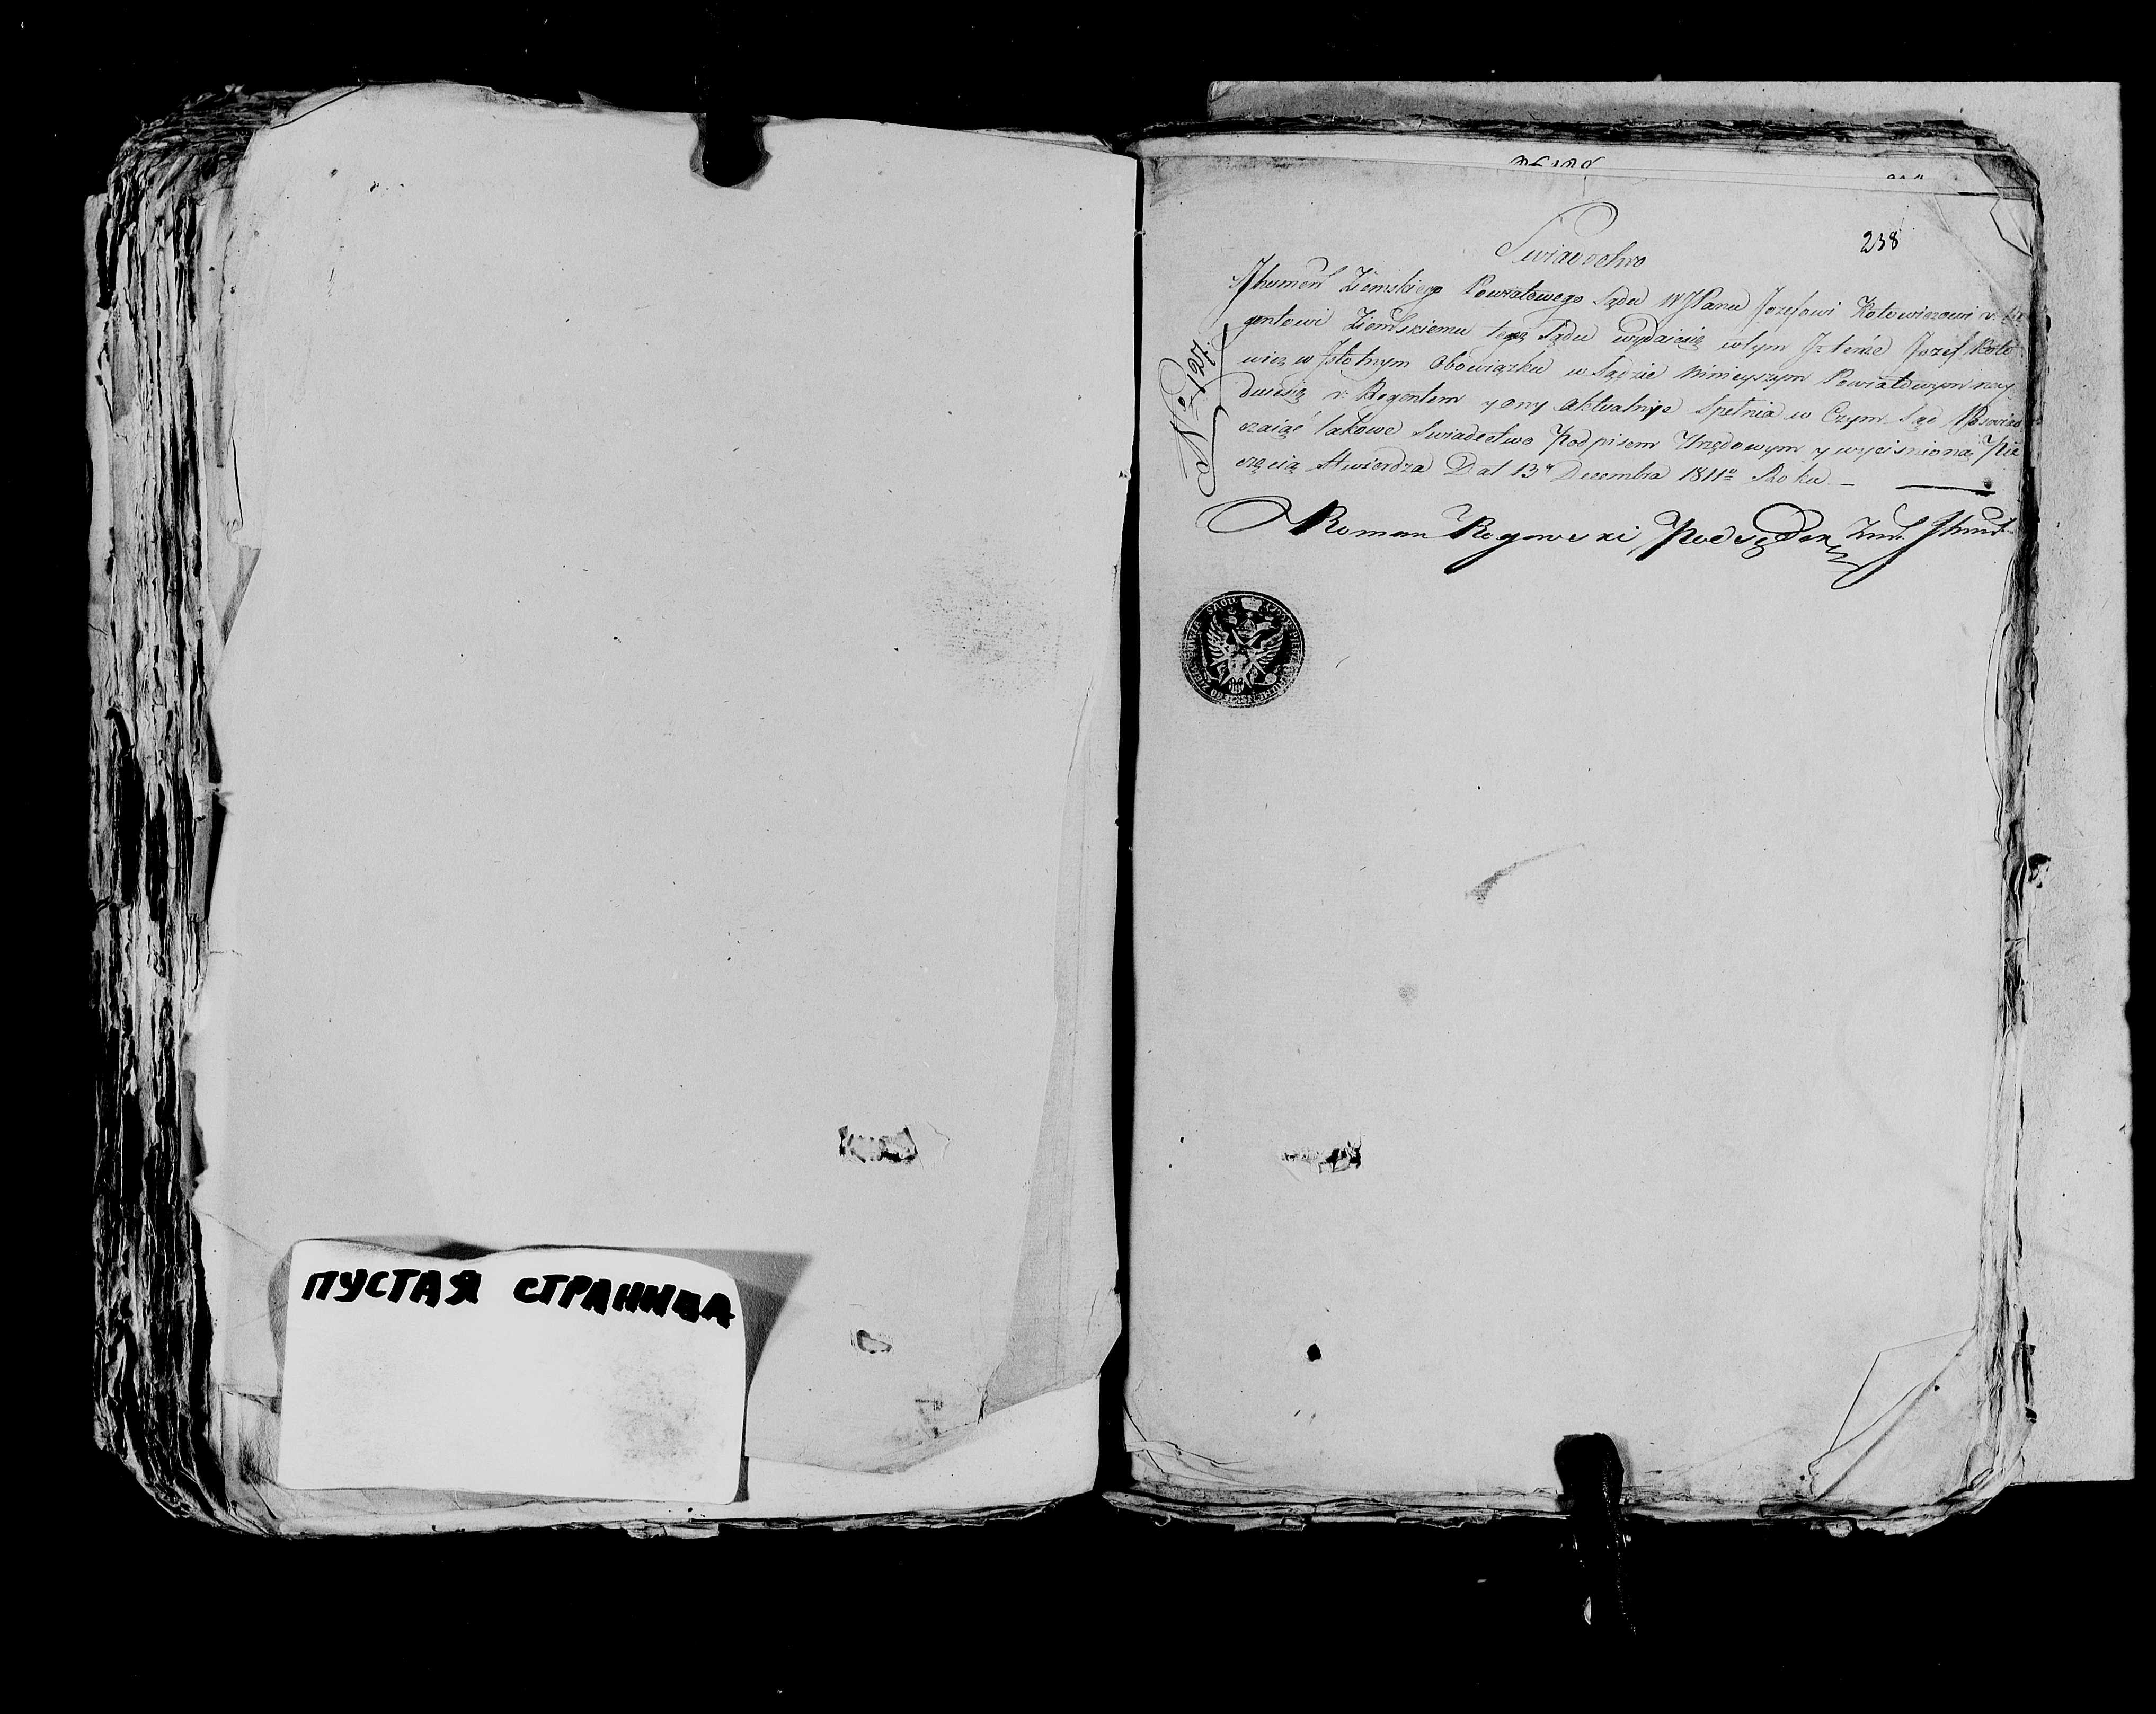 ПУСТАЯ СТРАНИЦА
238
Swiadectwo
Jhumen Ziemskiego Powiatowego Sądu WJPanu Jozefowi Kotowiczowi v: Re
gentowi Ziemskiemu tegoż Sądu wydaiesię wtym Iż tenże Jozef Koto
wicz w Jstotnym Obowiązku w Sądzie Ninieyszym Powiatowym nay
duiesię v: Regentem y ony Aktualnye Spełnia w Czym Sąd Poswiad
czaiąc takowe Swiadectwo Podpisem Urzędowym y wycisnioną Pie
częcią Stwierdza Dat 13 Decembra 1811 Roku
Roman Podsędek Ihum
N 127